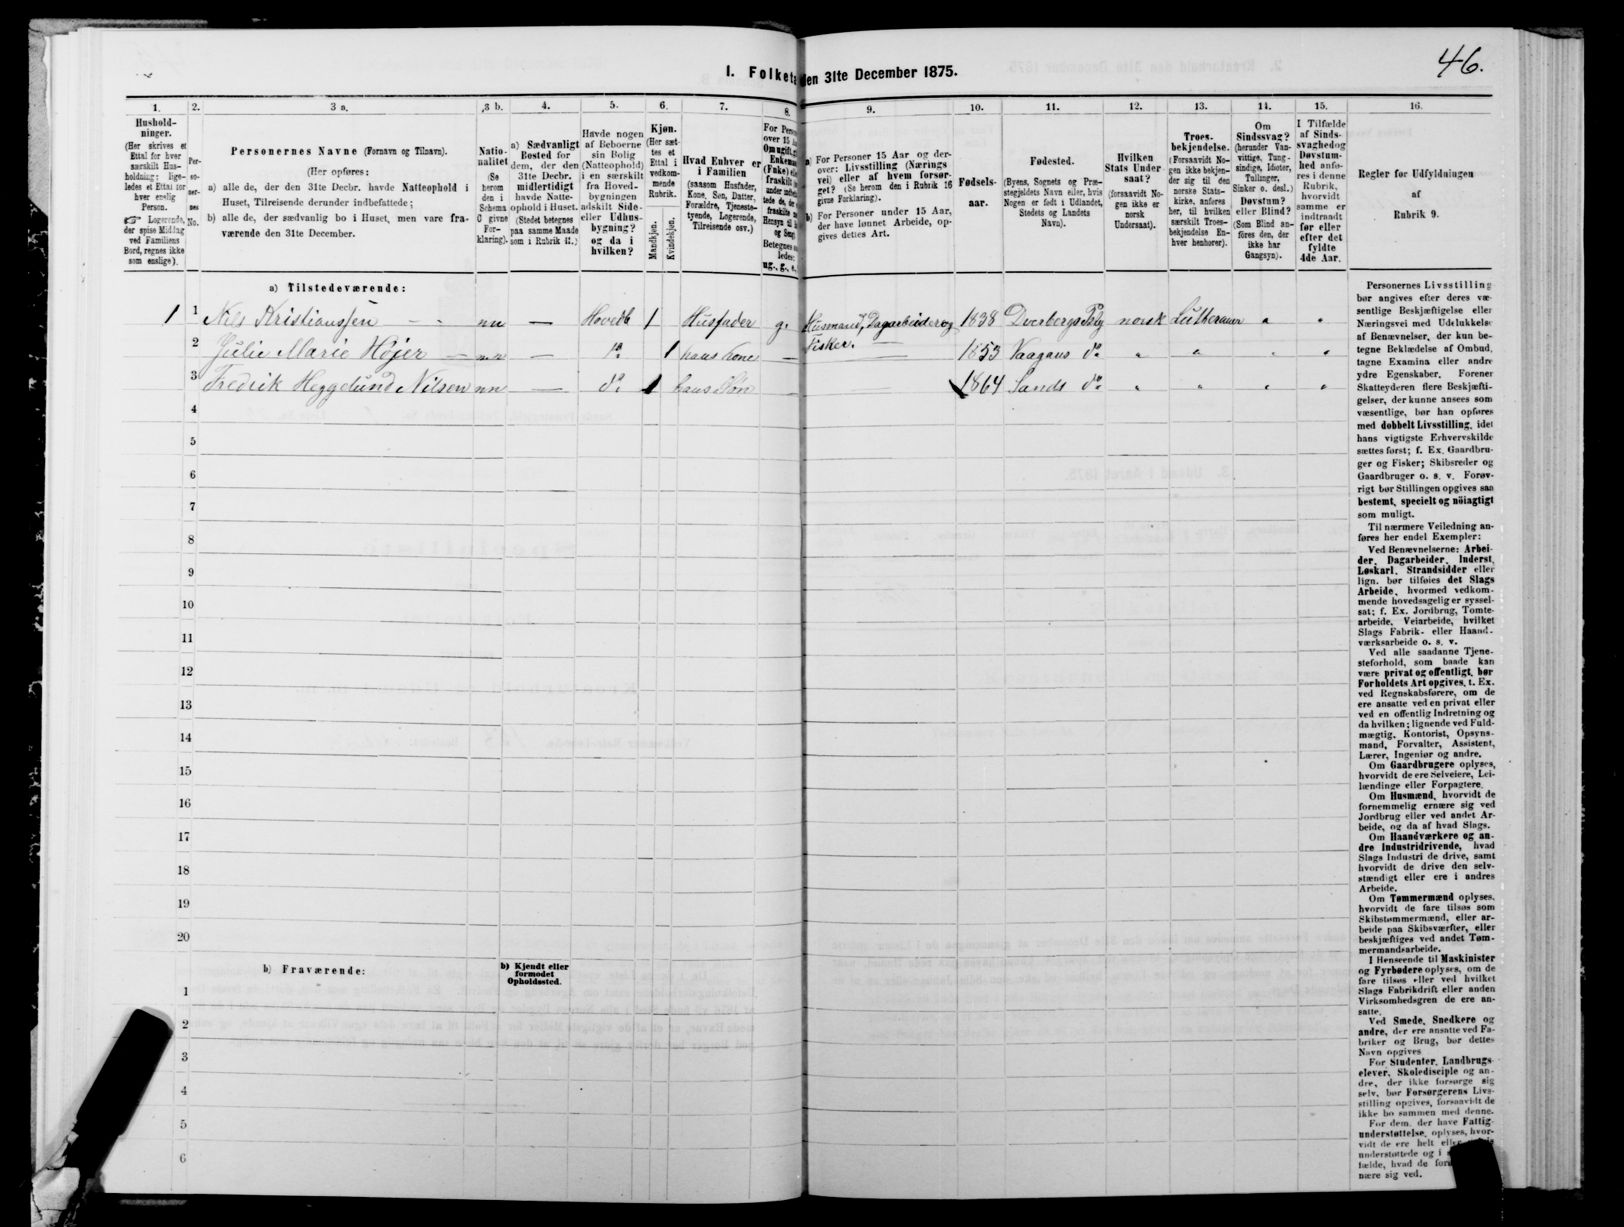 46.
I. Folketa den 31te December 1875.
1. 2. 3 a. 3 b. 4. 5. 6. 7. 8. 9. 10. 11. 12. 13. 14. 15. 16.
Hushold-
ninger.
(Her skrives et
Ettal for hver
særskilt Hus-
holdning; lige-
ledes et Ettal for
hver enslig
Person.
☞ Logerende,
der spise Middag
ved Familiens
Bord, regnes ikke
som enslige).
Per-
so-
ner-
nes
No.
Personernes Navne (Fornavn og Tilnavn).
(Her opføres:
a) alle de, der den 31te Decbr. havde Natteophold i
Huset, Tilreisende derunder indbefattede;
b) alle de, der sædvanlig bo i Huset, men vare fra-
værende den 31te December.
Natio-
nalitet
(Se
herom
den i
Schema
C givne
For-
klaring).
a) Sædvanligt
Bosted for
dem, der den
31te Decbr.
midlertidigt
havde Natte-
ophold i Huset.
(Stedet betegnes
paa samme Maade
som i Rubrik 11.)
Havde nogen
af Beboerne
sin Bolig
(Natteophold)
i en særskilt
fra Hoved-
bygningen
adskilt Side-
eller Udhus-
bygning?
og da i
hvilken?
Kjøn.
(Her sæt-
tes et
Ettal i
vedkom-
mende
Rubrik.
Mandkjøn.
Kvindekjøn.
Hvad Enhver er
i Familien
(saasom Husfader,
Kone, Søn, Datter,
Forældre, Tjeneste-
tyende, Logerende,
Tilreisende osv.)
For Perso
over 15 A
Om ugift, g
Enkeman
(Enke) elle
fraskilt
Betegnes
ledes:
ug., g., e.
a) For Personer 15 Aar og der-
over: Livsstilling (Nærings
vei) eller af hvem forsør-
get? (Se herom den i Rubrik 16
givne Forklaring).
b) For Personer under 15 Aar,
der have lønnet Arbeide, op-
gives dettes Art.
Fødsels-
aar.
Fødested.
(Byens, Sognets og Præ-
stegjeldets Navn eller, hvis
Nogen er født i Udlandet,
Stedets og Landets
Navn).
Hvilken
Stats Under
saat?
(forsaavidt No-
gen ikke er
norsk
Undersaat).
Troes-
bekjendelse.
(Forsaavidt No-
gen ikke bekjen-
der sig til den
norske Stats-
kirke, anføres
her, til hvilken
særskilt Troes-
bekjendelse En-
hver henhører).
Om
Sindssvag?
(herunder Van-
vittige, Tung-
sindige, Idioter,
Tullinger,
Sinker o. desl.)
Døvstum?
eller Blind?
(Som Blind an-
føres den, der
ikke har
Gangsyn).
I Tilfælde
af Sinds-
svaghed og
Døvstum-
hed anfø-
res i denne
Rubrik,
hvorvidt
samme er
indtraadt
før eller
efter det
fyldte
4de Aar.
Regler for Udfyldningen
af
Rubrik 9.
a) Tilstedeværende:
1 1 Nils Kristianssen - - nn — Hovedb 1 Husfader g. Husmand, Dagarbeider og Fisker. 1838 Dverbergs Pstg norsk Lutheraner " "
2 Julie Marie Højer — nn — do 1 hans Kone — — 1853 Vaagans do " " " "
3 Fredrik Heggelund Nilsen nn — do 1 hans Søn — — 1864 Sands do " " " "
4
5
6
7
8
9
10
11
12
13
14
15
16
17
18
19
20
b) Fraværende:
b) Kjendt eller
formodet
Opholdssted.
1
2
3
4
5
6
Personernes Livsstilling
bør angives efter deres væ-
sentlige Beskjæftigelse eller
Næringsvei med Udelukkelse
af Benævnelser, der kun be-
tegne Beklædelse af Ombud,
tagne Examina eller andre
ydre Egenskaber. Forener
Skatteyderen flere Beskjæfti-
gelser, der kunne ansees som
væsentlige, bør han opføres
med dobbelt Livsstilling, idet
hans vigtigste Erhvervskilde
sættes først; f. Ex. Gaardbru-
ger og Fisker; Skibsreder og
Gaardbruger o. s. v. Forøv-
rigt bør Stillingen opgives saa
bestemt, specielt og nöiagtigt
som muligt.
Til nærmere Veiledning an-
føres her endel Exempler:
Ved Benævnelserne: Arbei-
der, Dagarbeider, Inderst,
Løskarl, Strandsidder eller
lign. bør tilføies det Slags
Arbeide, hvormed vedkom-
mende hovedsagelig er syssel-
sat; f. Ex. Jordbrug, Tomte-
arbeide, Veiarbeide, hvilket
Slags Fabrik- eller Haand-
værksarbeide o. s. v.
Ved alle saadanne Tjene-
steforhold, som baade kan
være privat og offentligt, bør
Forholdets Art opgives, t. Ex.
ved Regnskabsførere, om de
ere ansatte ved en privat eller
ved en offentlig Indretning og
da hvilken; lignende ved Fuld-
mægtig, Kontorist, Opsyns-
mand, Forvalter, Assistent,
Lærer, Ingeniør og andre.
Om Gaardbrugere oplyses,
hvorvidt de ere Selveiere, Lei-
lændinge eller Forpagtere.
Om Husmænd, hvorvidt de
fornemmelig ernære sig ved
Jordbrug eller ved andet Ar-
beide, og da af hvad Slags.
Om Haandværkere og an-
dre Industridrivende, hvad
Slags Industri de drive, samt
hvorvidt de drive den selv-
stændigt eller ere i andres
Arbeide.
Om Tømmermænd oplyses,
hvorvidt de fare tilsøs som
Skibstømmermænd, eller ar-
beide paa Skibsværfter, eller
beskjæftiges ved andet Tøm-
mermandsarbeide.
I Henseende til Maskinister
og Fyrbødere oplyses, om de
fare tilsøs eller ved hvilket
Slags Fabrikdrift eller anden
Virksomhedsgren de ere an-
satte.
Ved Smede, Snedkere og
andre, der ere ansatte ved Fa-
briker og Brug, bør dettes
Navn opgives
For Studenter, Landbrugs-
elever, Skoledisciple og an-
dre, der ikke forsørge sig
selv, bør Forsørgerens Livs-
stilling opgives, forsaavidt de
ikke bo sammen med denne.
For dem, der have Fattig-
understøttelse, oplyses, hvor-
vidt de ere helt eller
understøttede og i
fælde, hvad de for
nære sig ved.